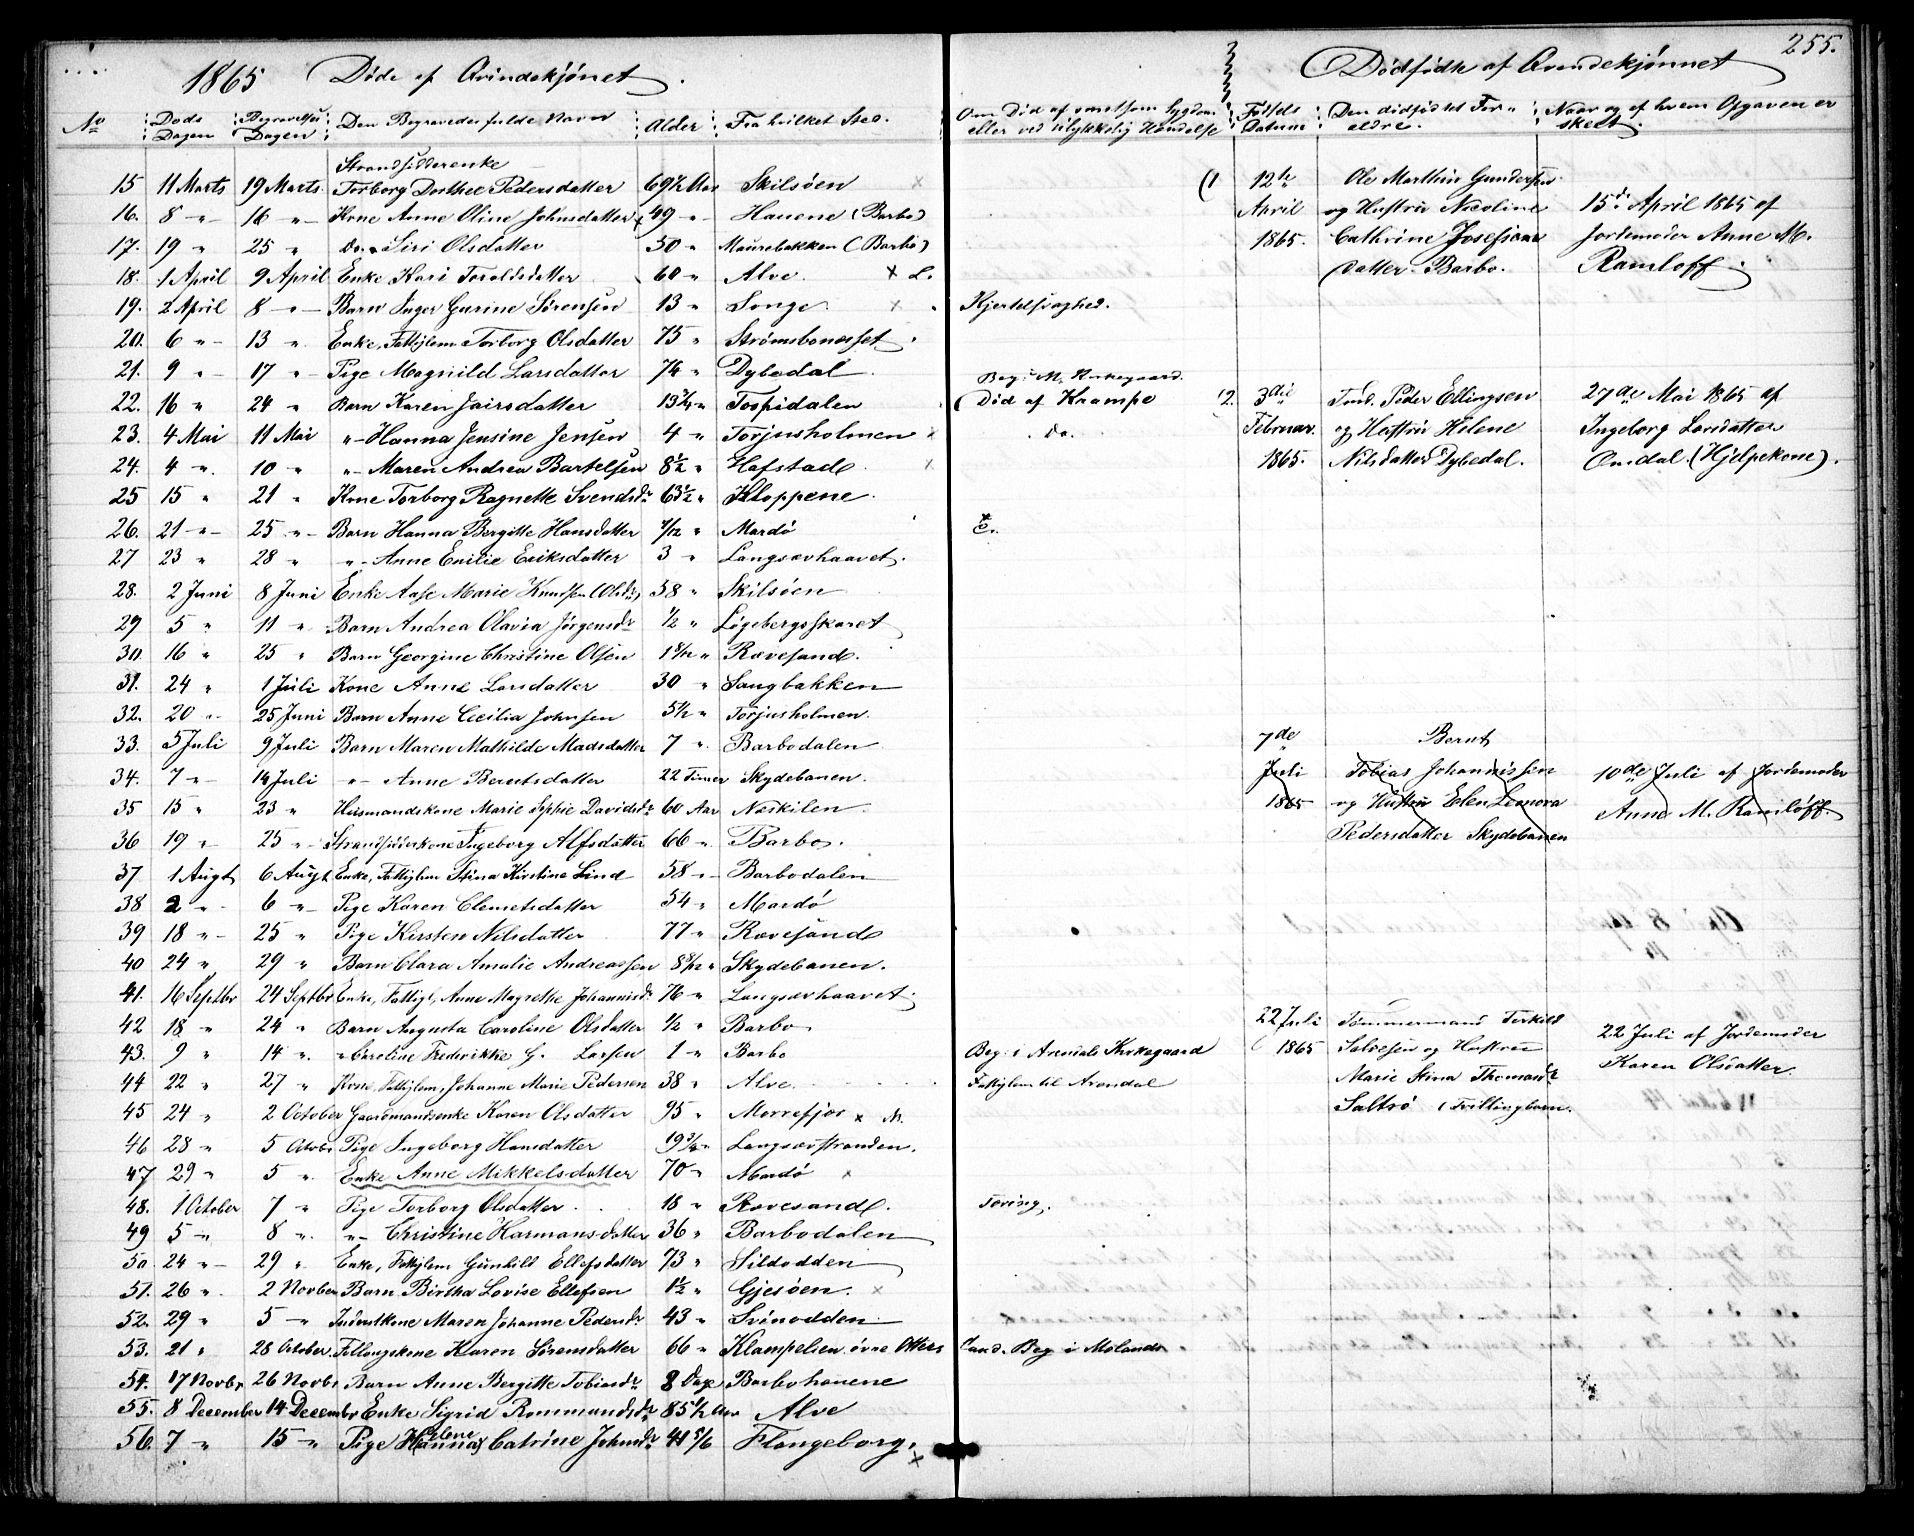 255.
1865 Døde af Qvindekjønnet.
Dødfødte af Qvindekjønnet
No Døds Dagen Begravelses Dagen Den Begravedes fulde Navn Alder Fra hvilket Sted.
Om Død af smitsom Sygdom eller ved ulykkelig Hændelse Fødsels Datum Den dødfødtes Forældre. Naar og af hvem Opgaven er skeet.
Strandsidderenke
15 11 Marts 19 Marts. Torborg Dorthee Pedersdatter 69½ Aar Skilsöen
16. 8 " 16 " Kone Anne Oline Johnsdatter 49 " Hauene (Barbo)
17. 19 " 25 " do. Siri Olsdatter 50 " Maurebakken (Barbo)
18. 1 April 9 April Enke Kari Toroldsdatter 60 " Alve. × L.
19. 2 April 8 " Barn Inger Gurine Sörensen 13 " Songe. ×
20. 6 " 13 " Enke, Fattiglem Torborg Olsdatter 75 " Strömsboneset.
21. 9 " 17 " Pige Magnild Larsdatter 74 " Dybedal
22. 16 " 24 " Barn Karen Jairsdatter " Tospidalen
23. 4 Mai 11 Mai " Hanna Jensine Jensen 4 " Torjusholmen ×
24. 4 " 10 " " Maren Andrea Bartelsen 8½ " Hafstad. ×
25 15 " 21 " Kone Torborg Ragnette Svendsdr 63½ " Kloppene.
26. 21 " 25 " Barn Hanna Bergitte Hansdatter " Mardö
27 23 " 28 " " Anne Emilie Eriksdatter 3 " Langsævhaavet.
28. 2 Juni 8 Juni Enke Aase Marie Knudsen (Olsdr) 58 " Skilsöen
29 5 " 11 " Barn Andrea Olavia Jörgensdr ½ " Lögebergsskaret
30 16 " 25 " Barn Georgine Christine Olsen " Rævesand.
31. 24 " 1 Juli Kone Anne Larsdatter 30 " Langbakken
32. 20 " 25 Juni Barn Anne Cecilia Johnsen 5½ " Torjusholmen.
33. 5 Juli 9 Juli Barn Maren Mathilde Madsdatter 7 " Barbodalen
34. 7 " 14 Juli " Anne Berntsdatter 22 Timer Skydebanen.
35 15 " 23 " Huusmandskone Marie Sophie Davidsdr 60 Aar Neskilen.
36 19 " 25 " Strandsidderkone Ingeborg Alfsdatter 66 " Barbo.
37 1 Augt 6 Augt Enke, Fattiglem Stina Kirstine Lind 58 " Barbodalen
38 2 " 6 " Pige Karen Clemetsdatter 54 " Mardö
39 18 " 25 " Pige Kirsten Nilsdatter 77 " Rævesand
40 24 " 29 " Barn Clara Amalie Andreassen " Skydebanen.
41. 16 Septbr 24 Septbr Enke, Fattigl, Anne Magrethe Johannisdr 76 " Langsævhaavet.
42 18 " 24 " Barn Augusta Caroline Olsdatter ½ " Barbo
43. 9 " 14 " " Caroline Frederikke G. Larsen 1 " Barbo
44 22 " 27 " Kone, Fattiglem, Johanne Marie Pedersen 38 " Alve.
45 24 " 2 October Gaardmandsenke Karen Olsdatter 95 " Morrefjær × M.
46 28 " 5 Octobr Pige Ingeborg Hansdatter " Langsævstranden.
47 29 " 5 " Enke Anne Mikkelsdatter 70 " Mardö ×
48. 1 October 7 " Pige Torborg Olsdatter 18 " Rævesand.
49 5 " 8 " " Christine Harmansdatter 36 " Barbodalen
50. 24 " 29 " Enke, Fattiglem Gunhild Ellefsdatter 73 " Sildodden
51. 26 " 2 Novber Barn Birtha Lovise Ellefsen 1½ " Gjesöen. ×
52. 29 " 5 " Inderstkone Maren Johanne Pedersdr 43 " Svinodden
53. 21 " 28 October. Kone Karen Sörensdatter 66 " Klampelien övre Otters
54. 17 Novbr 26 Novbr Barn Anne Bergitte Tobiasdr 8 Dage Barbohauene
55. 8 December 14 December Enke Sigrid Rommandsdr 85½ Aar Alve
56. 7 " 15 " Pige Hanna Catrine Johnsdr 41 5/6 Flangeborg. ×
Kjertelsvaghed.
Beg. i M. Kirkegaard.
Död af Krampe
do.
Beg. i Arendals Kirkegaard
Fattiglem til Arendal
Tæring.
land. Beg i Molands
(1 12te April 1865. Ole Marthin Gundersen
og Hustru Nicoline
Cathrine Josefine
datter. Barbo.
15de April 1865 af
Jordemoder Anne M.
Ramloff.
(2. 3die Februar. 1865. Peder Ellingsen
og Hustru Helene
Nilsdatter Dybedal.
27de Mai 1865 af
Ingeborg Larsdatter
Omdal. (Hjelpekone).
7de Juli 1865 Bernt
Tobias Johannissen
og Hustru Elen Lenora
Pedersdatter Skydebanen
10de Juli af Jordemoder
Anne M. Ramlöff.
22 Juli 1865 Tömmermand Terkild
Salvesen og Hustru
Marie Stina Thomasdr
Saltrö (Tvillingbarn.
22 Juli af Jordemoder
Karen Olsdatter.